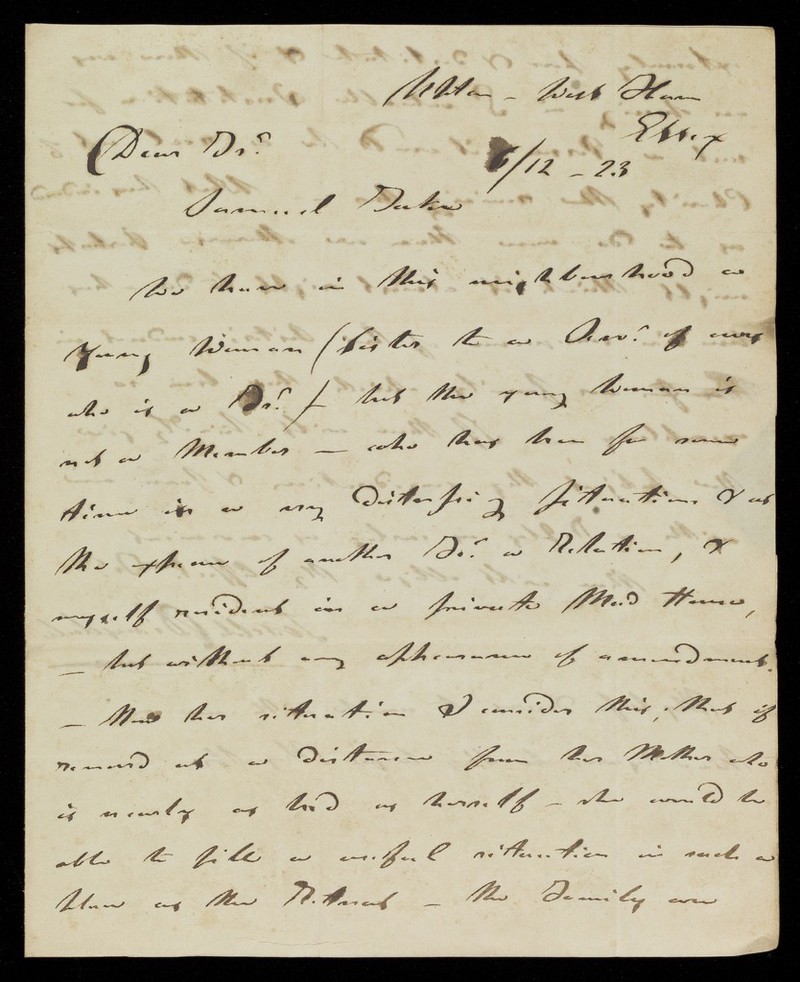 Upton - West Ham
Essex
Dear Frd. 6/12 - 23
Samuel Tuke
We have in this neighbourhood a
Young Woman (Sister to a of ours
who is a Frd.) but the young Woman is
not a Member - who has been for some
time in a very distressing situation & at
the expense of another Frd. a Relation, &
myself resident in a private Mad House,
- but without any appearance of amendment.
- Now her situation I consider this; that if
removed at a distance from her Mother who
is nearly as bad as herself - she would be
able to fill a useful situation in such a
place as the Retreat - the Family are